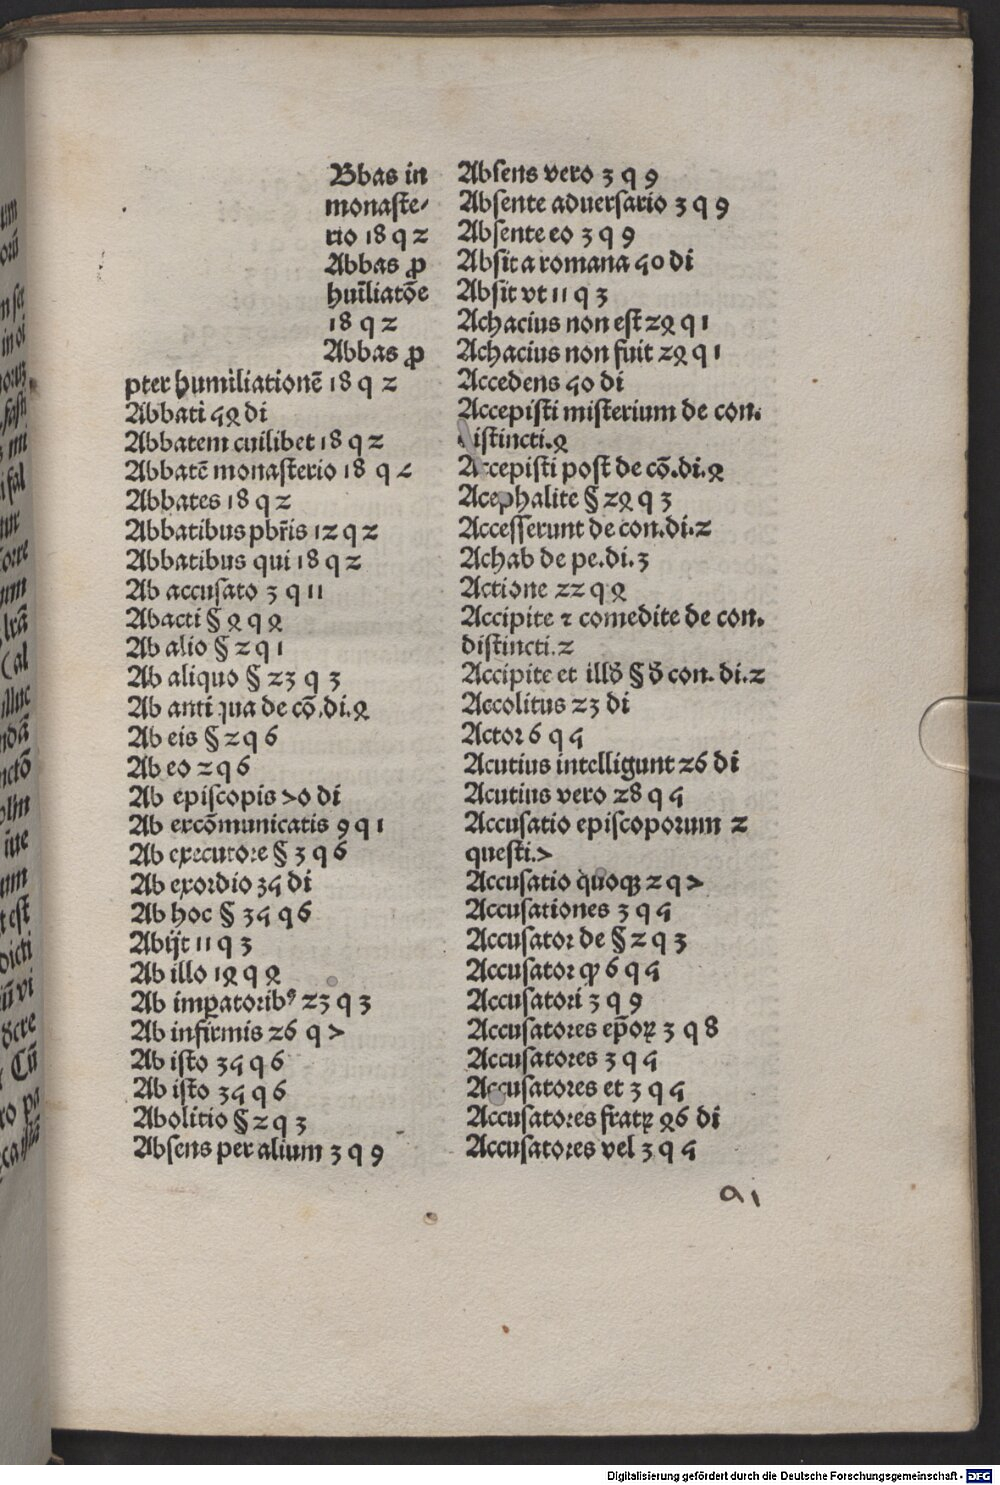 Bbas in
monaste-
rio 18 q 2
Abbas ꝓ
huīliatōe
18 q 2
Abbas ꝓ
pter humiliationē 18 q 2
Abbati 54 di
Abbatem cuilibet 18 q 2
Abbatē monasterio 18 q 2
Abbates 18 q 2
Abbatibus pbr̄is 12 q 2
Abbatibus qui 18 q 2
Ab accusato 3 q 11
Abacti § 4 q 4
Ab alio § 2 q 1
Ab aliquo § 23 q 3
Ab antiqua de cō.di.4
Ab eis § 2 q 6
Ab eo 2 q 6
Ab episcopis 70 di
Ab excōmunicatis 9 q 1
Ab executore § 3 q 6
Ab exordio 35 di
Ab hoc § 35 q 6
Abijt 11 q 3
Ab illo 14 q 4
Ab imꝑatoribꝰ 23 q 3
Ab infirmis 26 q 7
Ab isto 35 q 6
Ab isto 35 q 6
Abolitio § 2 q 3
Absens per alium 3 q 9
Absens vero 3 q 9
Absente aduersario 3 q 9
Absente eo 3 q 9
Absit a romana 50 di
Absit vt 11 q 3
Achacius non est 24 q 1
Achacius non fuit 24 q 1
Accedens 50 di
Accepisti misterium de con.
distincti.4
Accepisti post de cō.di.4
Acephalite § 24 q 3
Accesserunt de con.di.2
Achab de pe.di.3
Actione 22 q 4
Accipite ⁊ comedite de con.
distincti.2
Accipite et illđ § đ con. di.2
Accolitus 23 di
Actor 6 q 5
Acutius intelligunt 26 di
Acutius vero 28 q 5
Accusatio episcoporum 2
questi.7
Accusatio quoqꝫ 2 q 7
Accusationes 3 q 5
Accusator de § 2 q 3
Accusator ꝙ 6 q 5
Accusatori 3 q 9
Accusatores ep̄oꝝ 3 q 8
Accusatores 3 q 5
Accusatores et 3 q 5
Accusatores fratꝝ 46 di
Accusatores vel 3 q 5
a1
Digitalisierung gefördert durch die Deutsche Forschungsgemeinschaft - DFG